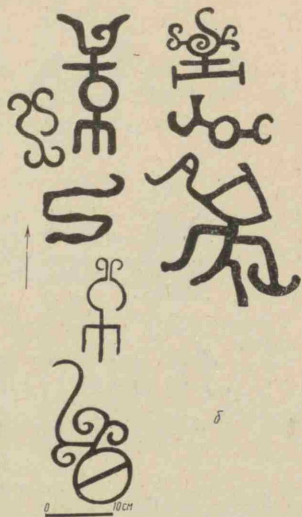 б
0 10 см